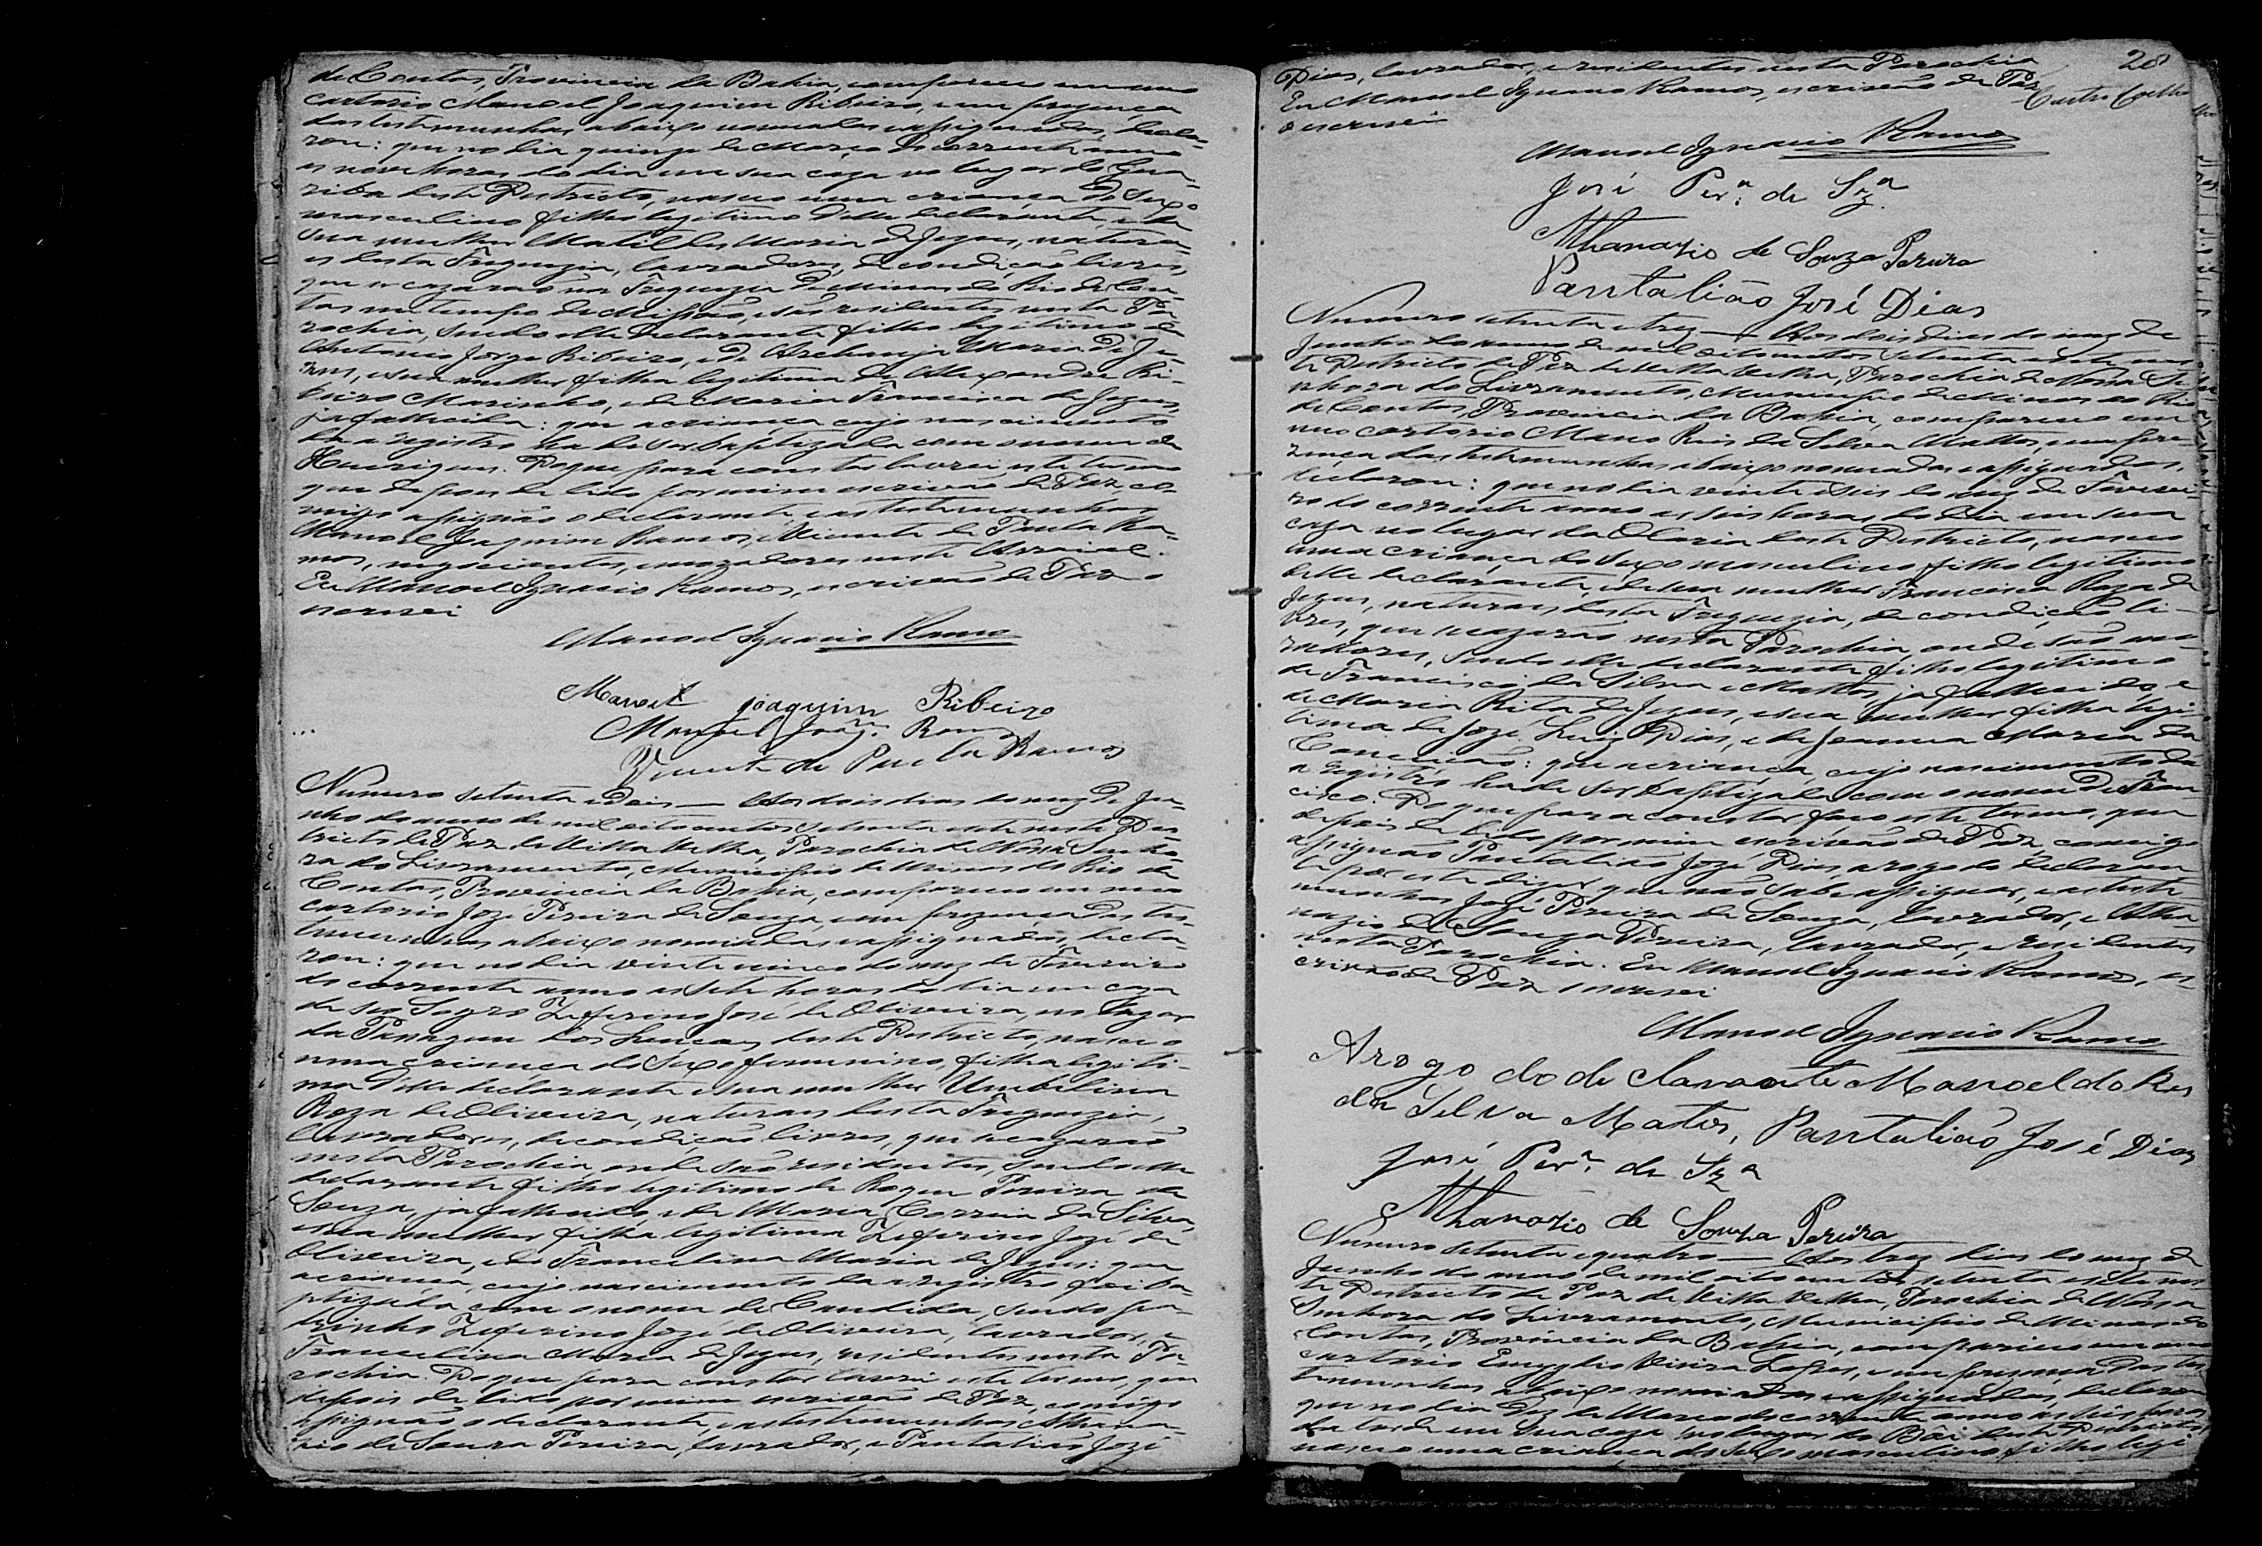 de Contas, Provincia da Bahia, compareceu em meu
cartorio Manoel Joaquim Ribeiro, e em prezença
das testemunhas abaixo nomeadas e assignadas, decla-
rou: que no dia quinze de Março do corrente anno
as nove horas do dia em sua caza no lugar do Gua-
riba deste Districto, nasceu uma criança do Sexo
masculino filho legitimo delle declarante, e de
sua mulher Matildes Maria de Jezus, natura-
es desta Freguezia, lavradores, de condição livres,
que se cazarão na Freguezia de Minas do Rio de Con-
tas em tempo de Missão, e são residentes nesta Pa-
rochia, sendo elle declarante filho legitimo de
Antonio Jorge Ribeiro, e de Archanja Maria de Je-
zus, e sua mulher filha legitima de Alexandre Ri-
beiro Marinho, e de Maria Francisca de Jezus,
ja fallecida: que a criança cujo nascimento
da a registro ha de ser baptizada com o nome de
Henrique. Do que para constar lavrei este termo
que depois de lido por mim escrivão de Paz co-
migo assignão o declarante e as testemunhas
Manoel Joaquim Ramos, e Vicente de Paula Ra-
mos, negociantes, e moradores neste Arraial.
Eu Manoel Ignacio Ramos, escrivão de Paz o
escrevi
Manoel Ignacio Ramos
Manoel joaquim Ribeiro
Manoel Joaqm. Ramos
Vicente de Paula Ramos
Numero setenta e dois — Aos dois dias do mez de Ju-
nho do anno de mil oito centos setenta e sete neste Dis-
tricto de Paz de Villa Velha, Parochia de Nossa Senho-
ra do Livramento, Municipio de Minas do Rio de
Contas, Provincia da Bahia, compareceu em meu
cartorio Jozé Pereira de Souza, e em prezença das tes-
temunhas abaixo nomeadas e assignadas, decla-
rou: que no dia vinte e cinco do mez de Fevereiro
do corrente anno as sete horas do dia em caza
de seo Sogro Zeferino José de Oliveira, no lugar
da Passagem dos deste Districto, nasceo
uma criança do Sexo feminino, filha legiti-
ma delle declarante e sua mulher Umbelina
Roza de Oliveira, naturaes desta Freguezia,
lavradores, de condição livres, que se cazarão
nesta Parochia, onde são residentes, sendo elle
declarante filho legitimo de Roque Pereira de
Souza, ja fallecido e de Maria Correia da Silva,
e sua mulher filha legitima Zeferino Jozé de
Oliveira, e de Francelina Maria de Jezus: que
a criança, cujo nascimento da a registro foi ba-
ptizada com o nome de Candida, sendo pa-
drinho Zeferino Jozé de Oliveira, lavrador, e
Francelina Maria de Jezus, residentes nesta Pa-
rochia. Do que para constar lavrei este termo, que
depois de lido por mim escrivão de Paz, comigo
assignão o declarante, e as testemunhas Athana-
zio de Souza Pereira, lavrador, e Pantalião Jozé
28
Dias, lavrador, e residentes nesta Parochia
Eu Manoel Ignacio Ramos, escrivão de Paz
o escrevi
Castro Coelho
Manoel Ignacio Ramos
José Perª. de Szª.
Athanazio de Souza Pereira
Pantalião José Dias
Numero setenta e trez — Aos dois dias do mez de
Junho do anno de mil oito centos setenta e sete nes-
te Districto de Paz de Villa Velha, Parochia de Nossa Se-
nhora do Livramento, Municipio de Minas do Rio
de Contas, Provincia da Bahia, compareceo em
meu cartorio Mano Reis da Silva Mattos, e em pre-
zença das testemunhas abaixo nomeadas e assignadas,
declarou: que no dia vinte e seis do mez de Feverei-
ro do corrente anno as seis horas do dia em sua
caza no lugar da Olaria deste Districto, nasceo
uma criança do Sexo masculino filho legitimo
delle declarante, e de sua mulher Francisca Roza de
Jezus, naturaes desta Freguezia, de condição li-
vres, que se cazarão nesta Parochia, onde são mo-
radores, sendo elle declarante filho legitimo
de Francisco da Silva e Mattos, ja fallecido, e
de Maria Rita de Jezus, e sua mulher filha legi-
tima de Jozé Luiz Dias, e de Joanna Maria da
Conceição: que a criança, cujo nascimento da
a registro ha de ser baptizada com o nome de Fran-
cisco. Do que para constar faço este termo, que
depois de lido por mim escrivão de Paz, comigo
assignão Pantalião Jozé Dias, a rogo do declaran-
te por este dizer que não sabe assignar, e as teste-
munhas Jozé Pereira de Souza, lavrador, e Atha-
nazio de Souza Pereira, lavrador, e residentes
nesta Parochia. Eu Manoel Ignacio Ramos, es-
crivão de Paz o escrevi
Manoel Ignacio Ramos
Arogo do de clarante Manoel do Reis
da Silva Matos, Pantalião José Dias
José Perª. de Szª
Athanazio de Souza Pereira
Numero setenta e quatro — Aos trez dias do mez de
Junho do anno de mil oito centos setenta e sete nes-
te Districto de Paz de Villa Velha, Parochia de Nossa
Senhora do Livramento, Municipio de Minas do
Contas, Provincia da Bahia, compareceu em meu
cartorio Emygdio Vieira Lopes, e em prezença das tes-
temunhas abaixo nomeadas e assignadas, declarou
que no dia dez de Março do corrente anno as seis horas
da tarde em sua caza no lugar do deste Districto,
nasceu uma criança do Sexo masculino, filho legi-